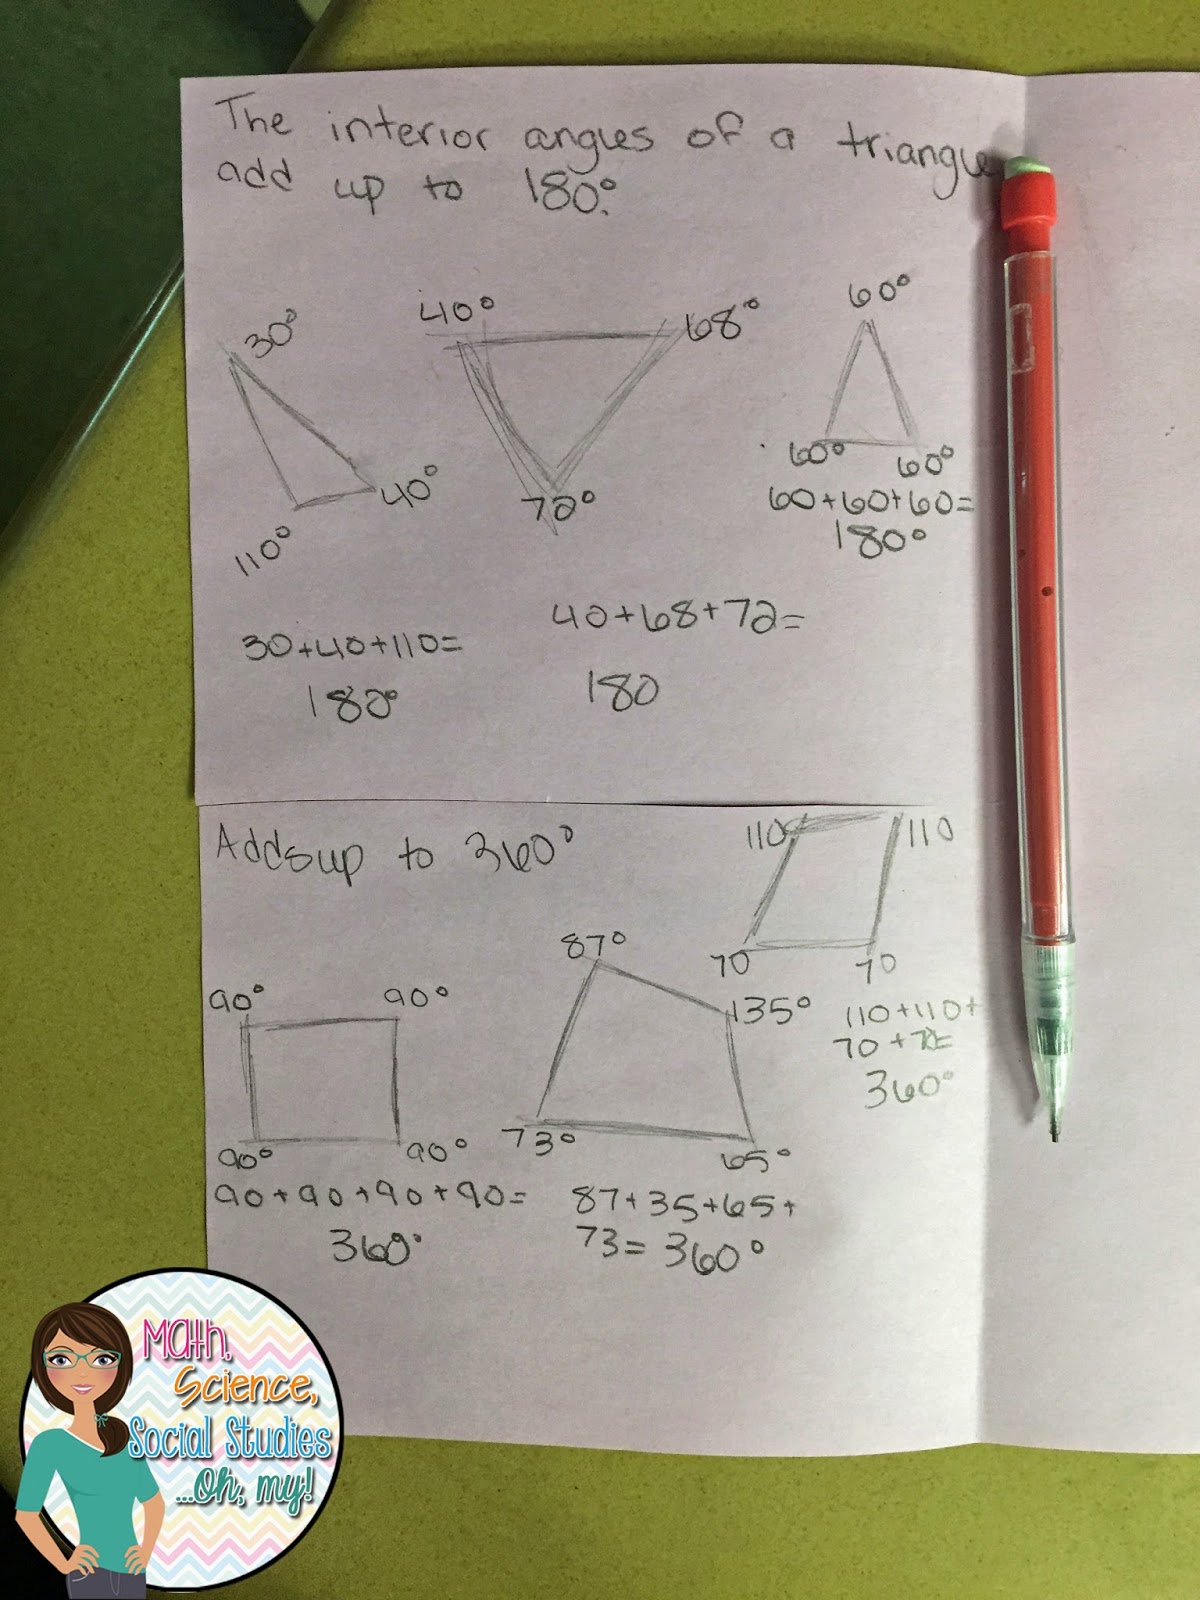 The interior angles of a triangle
add up to 180°.
30°
40°
110°
30+40+110=
180°
40°
68°
72°
40+68+72=
180
60°
60° 60°
60+60+60=
180°
Adds up to 360°
90° 90°
90° 90°
90+90+90+90=
360°
87°
135°
73°
65°
87+35+65+
73= 360°
110 110
70 70
110+110+
70+70=
360°
Math,
Science,
Social Studies
...Oh, my!